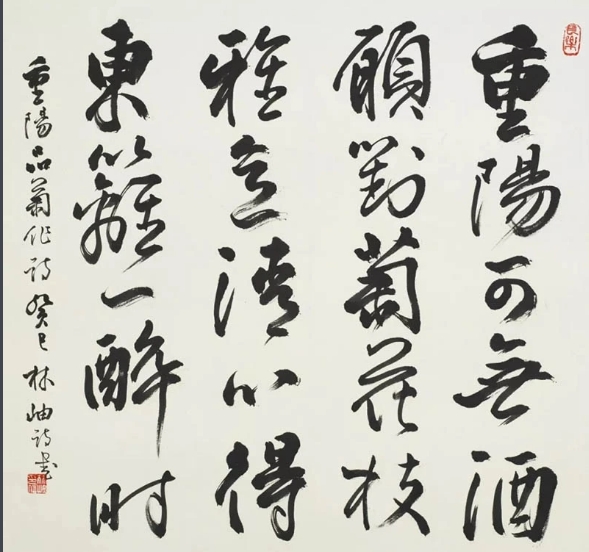 重陽可無酒
願對菊花枝
雅意清心得
東籬一醉時
重陽品菊作詩癸巳林岫詩書